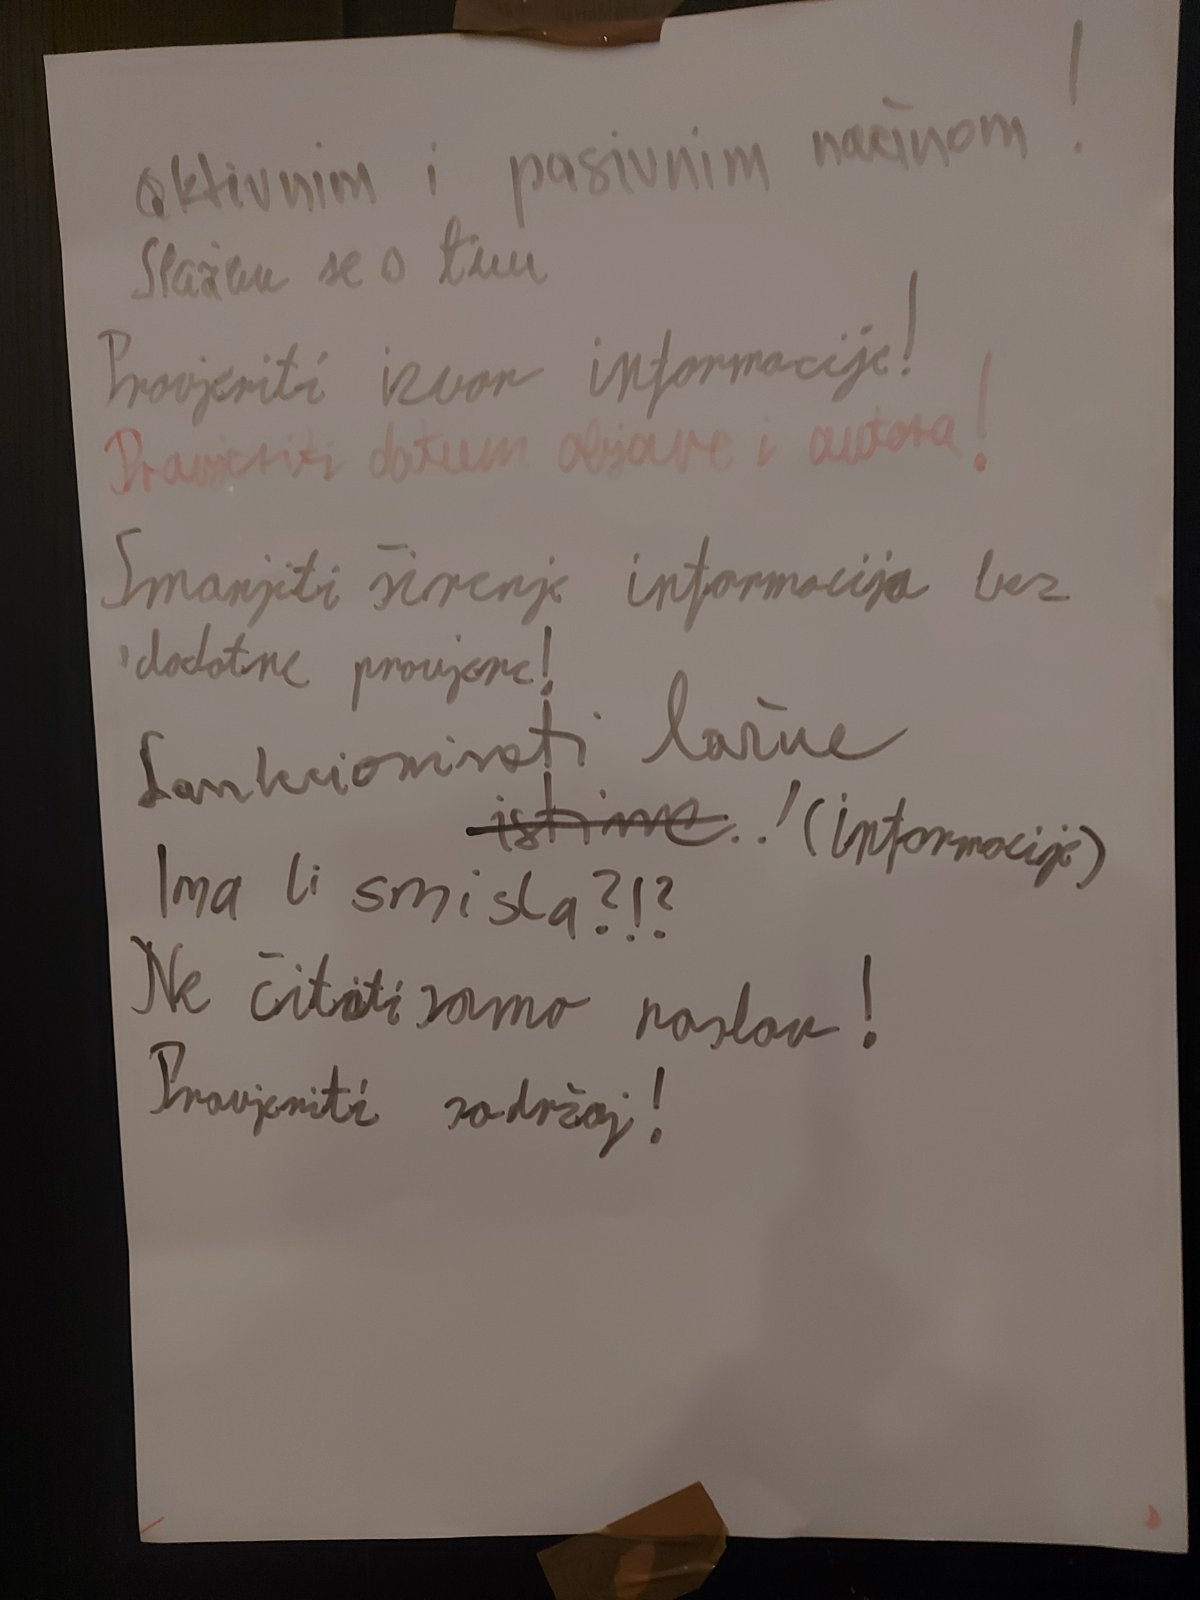 aktivnim i pasivnim načinom!
Slažem se s tim
Provjeriti izvor informacije!
Provjeriti datum objave i autora!
Smanjiti širenje informacija bez
dodatne provjere!
Sankcionirati lažne
istine..! (informacije)
Ima li smisla?!?
Ne čitati samo naslov!
Provjeriti sadržaj!